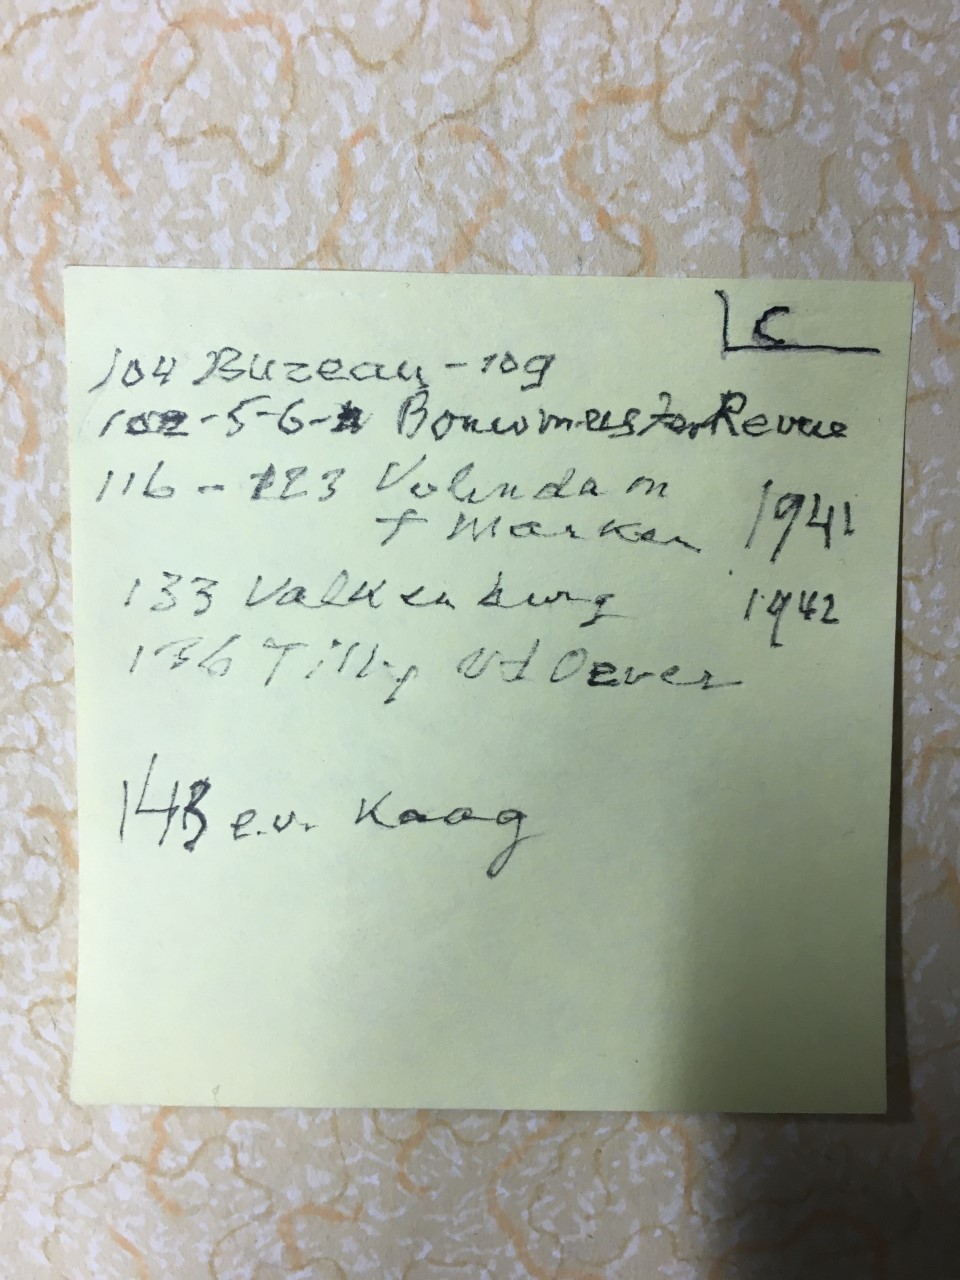 LC
104 Bureau - 109
102-5-6- Bouwmeester Revue
116 - 123 Volendam
+ Marken 1941
133 Valkenburg 1942
136 Tilly vd Oever
143 e.v. Kaag